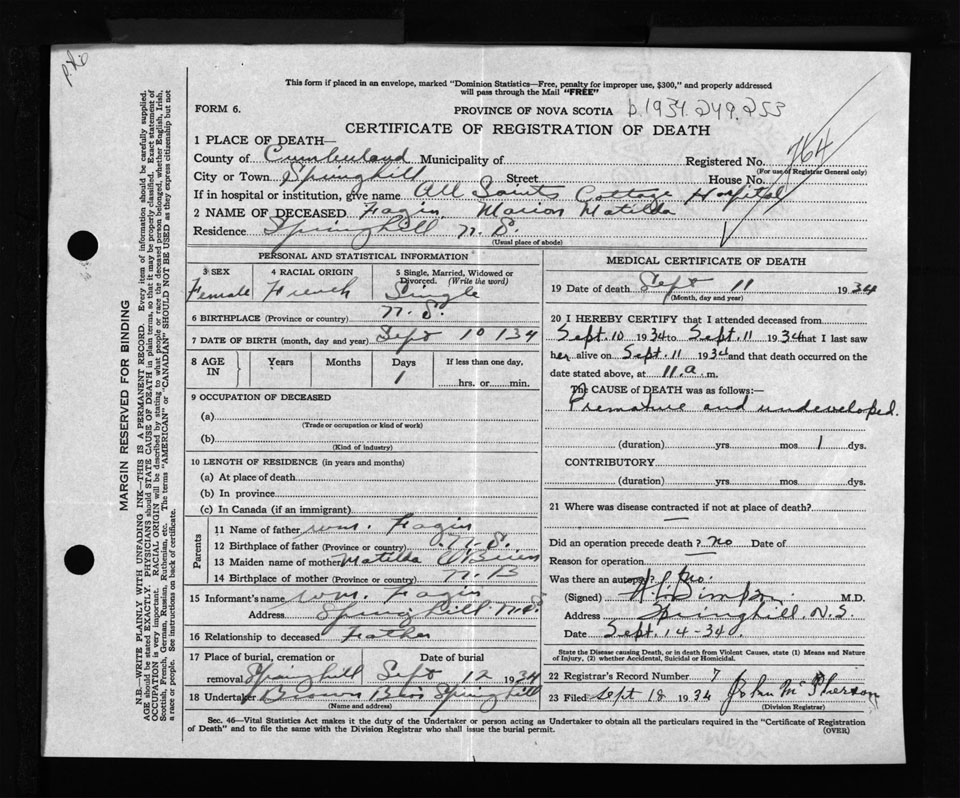 This form if placed in an envelope, marked "Dominion Statistics—Free, penalty for improper use, $300," and properly addressed
will pass through the Mail "FREE"
FORM 6.
PROVINCE OF NOVA SCOTIA b.1934.249.253
CERTIFICATE OF REGISTRATION OF DEATH
1 PLACE OF DEATH—
County of Cumberland Municipality of Registered No. 764
(For use of Registrar General only)
City or Town Springhill Street House No.
If in hospital or institution, give name All Saints Cottage Hospital
2 NAME OF DECEASED Fagin Marion Matilda
Residence Springhill N.S.
(Usual place of abode)
PERSONAL AND STATISTICAL INFORMATION
3 SEX
Female
4 RACIAL ORIGIN
French
5 Single, Married, Widowed or
Divorced. (Write the word)
Single
6 BIRTHPLACE (Province or country) N.S.
7 DATE OF BIRTH (month, day and year) Sept 10 134
8 AGE
IN
Years
Months
Days
1
If less than one day,
hrs. or min.
9 OCCUPATION OF DECEASED
(a)
(Trade or occupation or kind of work)
(b)
(Kind of industry)
10 LENGTH OF RESIDENCE (in years and months)
(a) At place of death
(b) In province
(c) In Canada (if an immigrant)
Parents
11 Name of father Wm. Fagin
12 Birthplace of father (Province or country) N.S.
13 Maiden name of mother Matilda O'Brien
14 Birthplace of mother (Province or country) N.B
15 Informant's name Wm. Fagin
Address Springhill N.S
16 Relationship to deceased Father
17 Place of burial, cremation or Date of burial
removal Springhill Sept 12 1934
18 Undertaker Brown Bros Springhill
(Name and address)
MEDICAL CERTIFICATE OF DEATH
19 Date of death Sept 11 1934
(Month, day and year)
20 I HEREBY CERTIFY that I attended deceased from
Sept. 10 1934 to Sept. 11 1934 that I last saw
her alive on Sept. 11 1934 and that death occurred on the
date stated above, at 11.a. m.
The CAUSE OF DEATH was as follows:—
Premature and undeveloped.
(duration) yrs. mos 1 dys.
CONTRIBUTORY
(duration) yrs. mos. dys.
21 Where was disease contracted if not at place of death?
Did an operation precede death? no Date of
Reason for operation
Was there an autopsy? No.
(Signed) Simpson M.D.
Address Springhill. N.S.
Date Sept. 14-34.
State the Disease causing Death, or in death from Violent Causes, state (1) Means and Nature
of Injury, (2) whether Accidental, Suicidal or Homicidal.
22 Registrar's Record Number 7
23 Filed Sept 18 1934 John McPherson
(Division Registrar)
Sec. 46—Vital Statistics Act makes it the duty of the Undertaker or person acting as Undertaker to obtain all the particulars required in the "Certificate of Registration
of Death" and to file the same with the Division Registrar who shall issue the burial permit.
(OVER)
MARGIN RESERVED FOR BINDING
N.B.—WRITE PLAINLY WITH UNFADING INK—THIS IS A PERMANENT RECORD. Every item of information should be carefully supplied.
AGE should be stated EXACTLY. PHYSICIANS should STATE CAUSE OF DEATH in plain terms, so that it may be properly classified. Exact statement of
OCCUPATION is very important. RACIAL ORIGIN will be described by stating to what people or race the deceased person belonged, whether English, Irish,
Scottish, French, German, Russian, Ruthenian, etc. The terms "AMERICAN" or "CANADIAN" SHOULD NOT BE USED as they express citizenship but not
a race or people. See instructions on back of certificate.